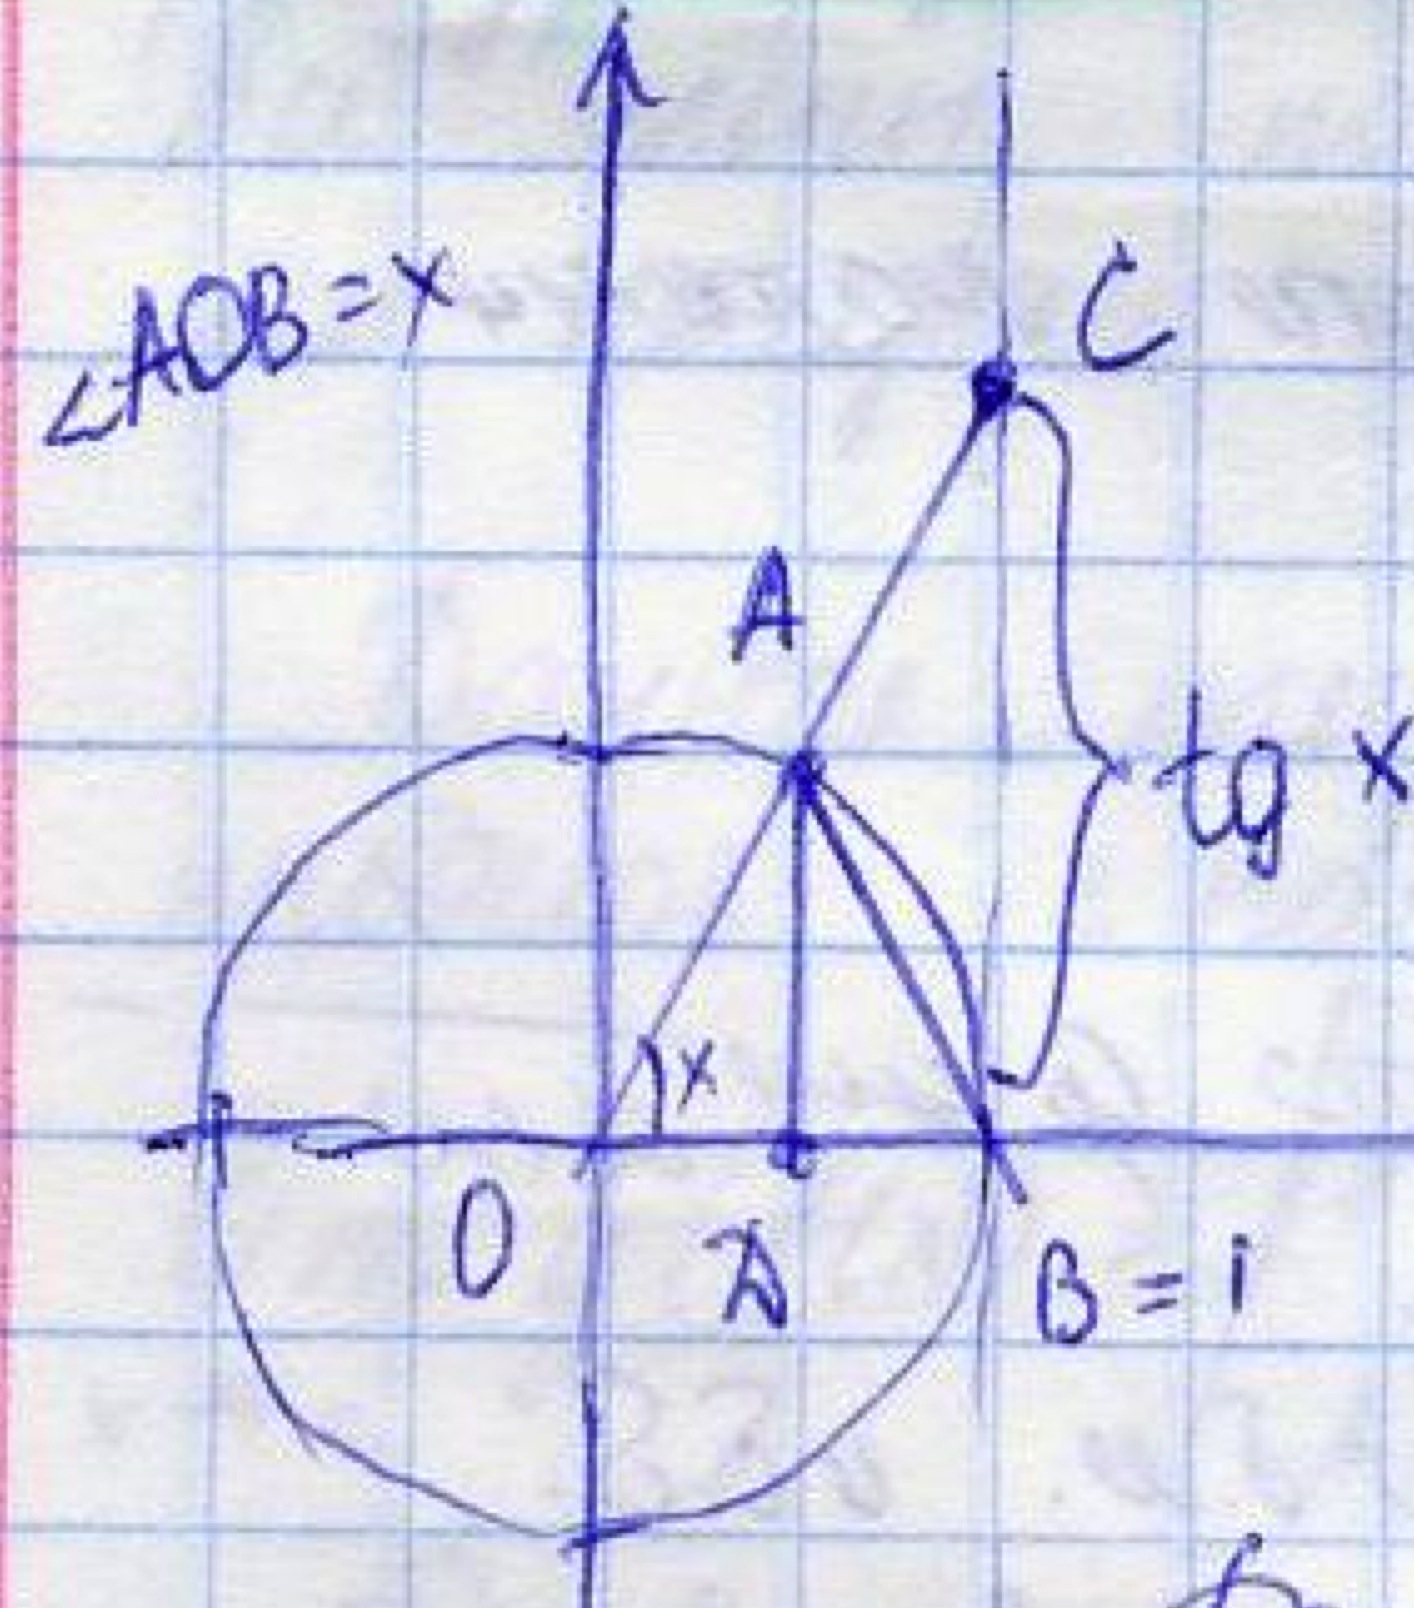 ∠AOB = x
C
A
tg x
x
O
D
B = 1